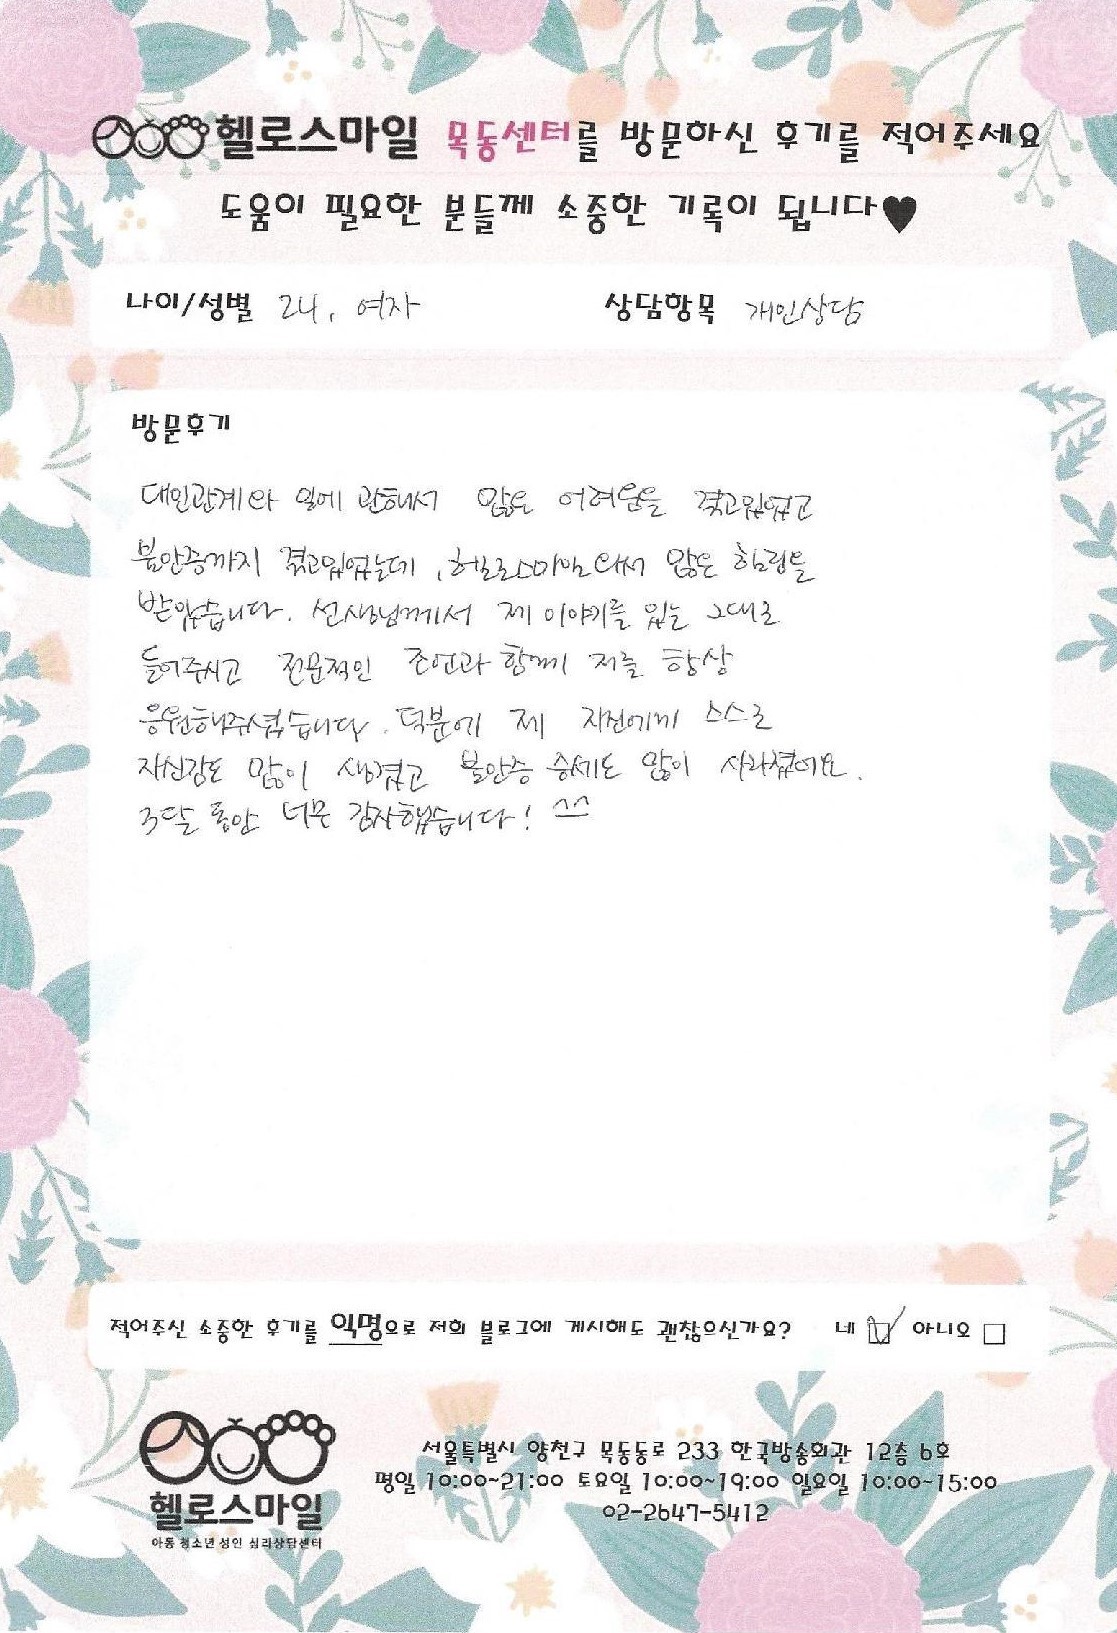 헬로스마일 목동센터를 방문하신 후기를 적어주세요
도움이 필요한 분들께 소중한 기록이 됩니다♥
나이/성별 24, 여자 상담항목 개인상담
방문후기
대인관계와 일에 관해서 많은 어려움을 겪고있었고
불안증까지 겪고있었는데, 헬로스마일와서 많은 힐링을
받았습니다. 선생님께서 제 이야기를 있는 그대로
들어주시고 전문적인 조언과 함께 저를 항상
응원해주셨습니다. 덕분에 제 자신에게 스스로
자신감도 많이 생겼고 불안증 증세도 많이 사라졌어요.
3달 동안 너무 감사했습니다! ^^
적어주신 소중한 후기를 익명으로 저희 블로그에 게시해도 괜찮으신가요? 네 ☑ 아니오 □
헬로스마일
아동 청소년 성인 심리상담센터
서울특별시 양천구 목동동로 233 한국방송회관 12층 6호
평일 10:00~21:00 토요일 10:00~19:00 일요일 10:00~15:00
02-2647-5412